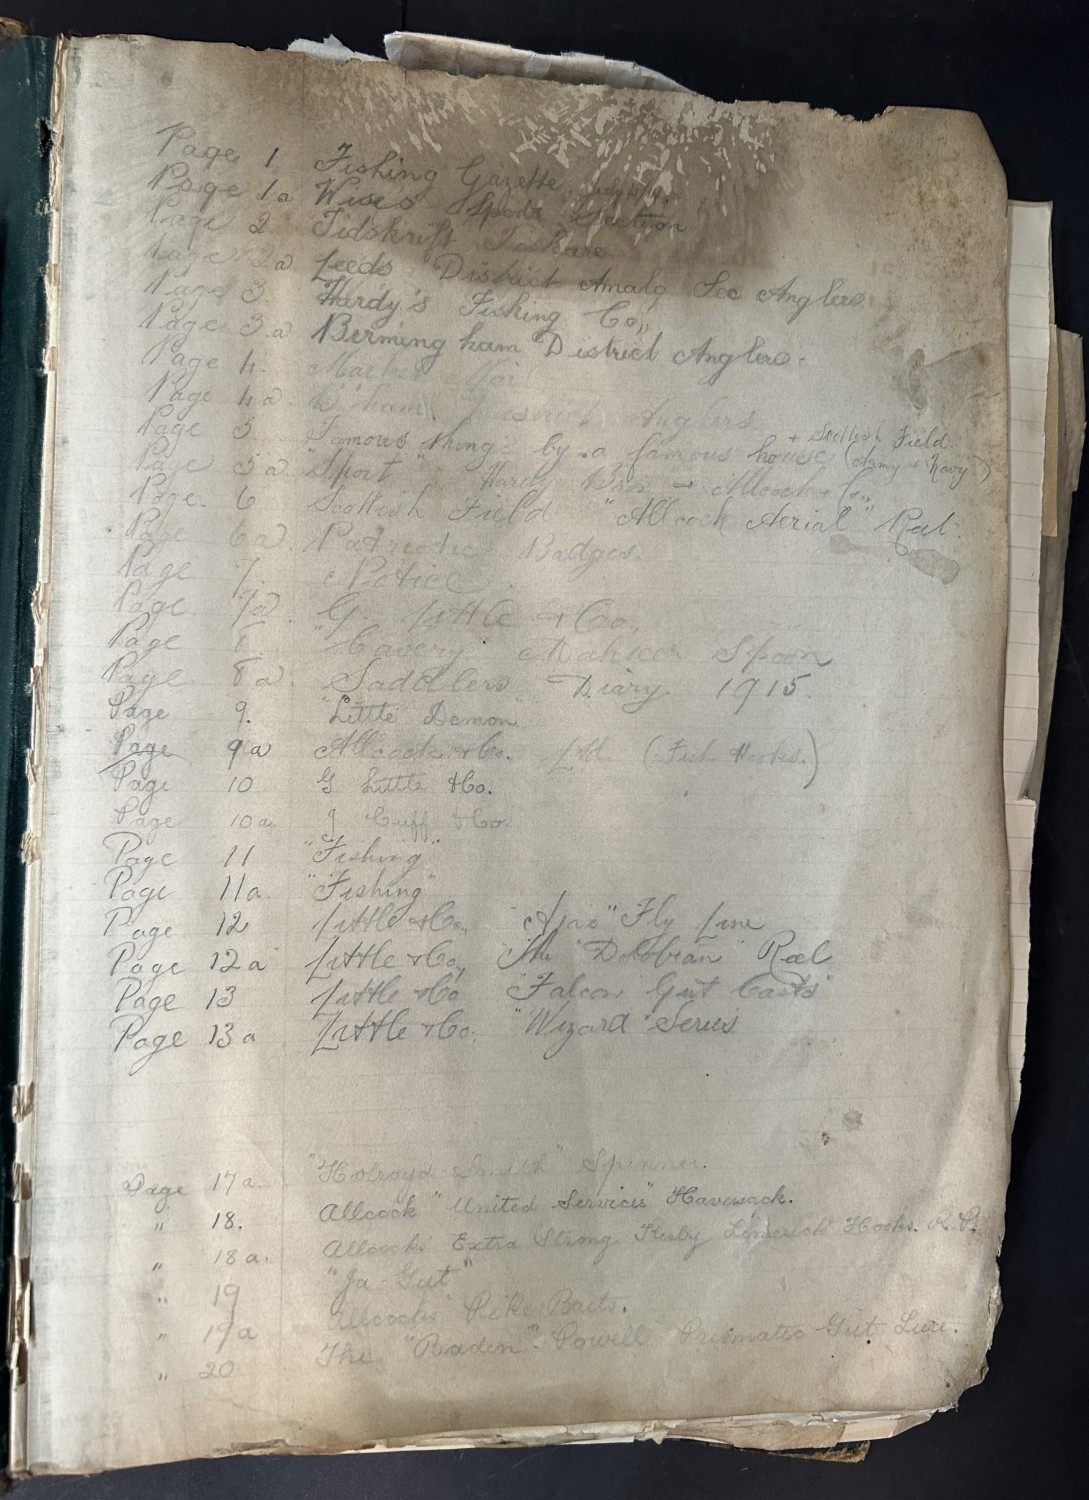 Page 1. Fishing Gazette.
Page 1a Wises Spoon Section
Page 2 Tidskrift
Page 2a Leeds District Amalg Soc Anglers
Page 3. Hardy's Fishing Co,,
Page 3.a Berming ham District Anglers.
Page 4.
Page 4a. B'ham. District Anglers
+ Scottish Field.
Page 5 "Famous things by a famous house (Army + Navy)
Page 5a "Sport" Hardy Bros + Allcock + Co.,
Page. 6 Scottish Field "Allcock Aerial" Reel.
Page 6a Patriotic Badges.
Page 7. Notice.
Page. 7a G. Little & Co.,
Page 8 "Cavery Mahseer Spoon
Page. 8a. Saddlers Diary. 1915.
Page 9. "Little Demon"
Page 9a Allcock & Co. Ltd (Fish Hooks.)
Page 10 G Little & Co.
Page 10a. J Cuff & Co.
Page 11 "Fishing"
Page 11a. "Fishing"
Page 12 Little & Co., "Ajax" Fly Line
Page 12a Little & Co, The Reel
Page 13 Little & Co "Falcon Gut Casts"
Page 13a Little & Co. "Wizard" Series
Page 17a. "Holroyd Smith" Spinner.
" 18. Allcock "United Services" Haversack.
" 18a. Allcocks Extra Strong Kirby Limerick Hooks.
" 19 "Ja-Gut"
" 19a Allcocks Pike Baits.
" 20 The "Baden"-Powell Prismatic Gut Lure.